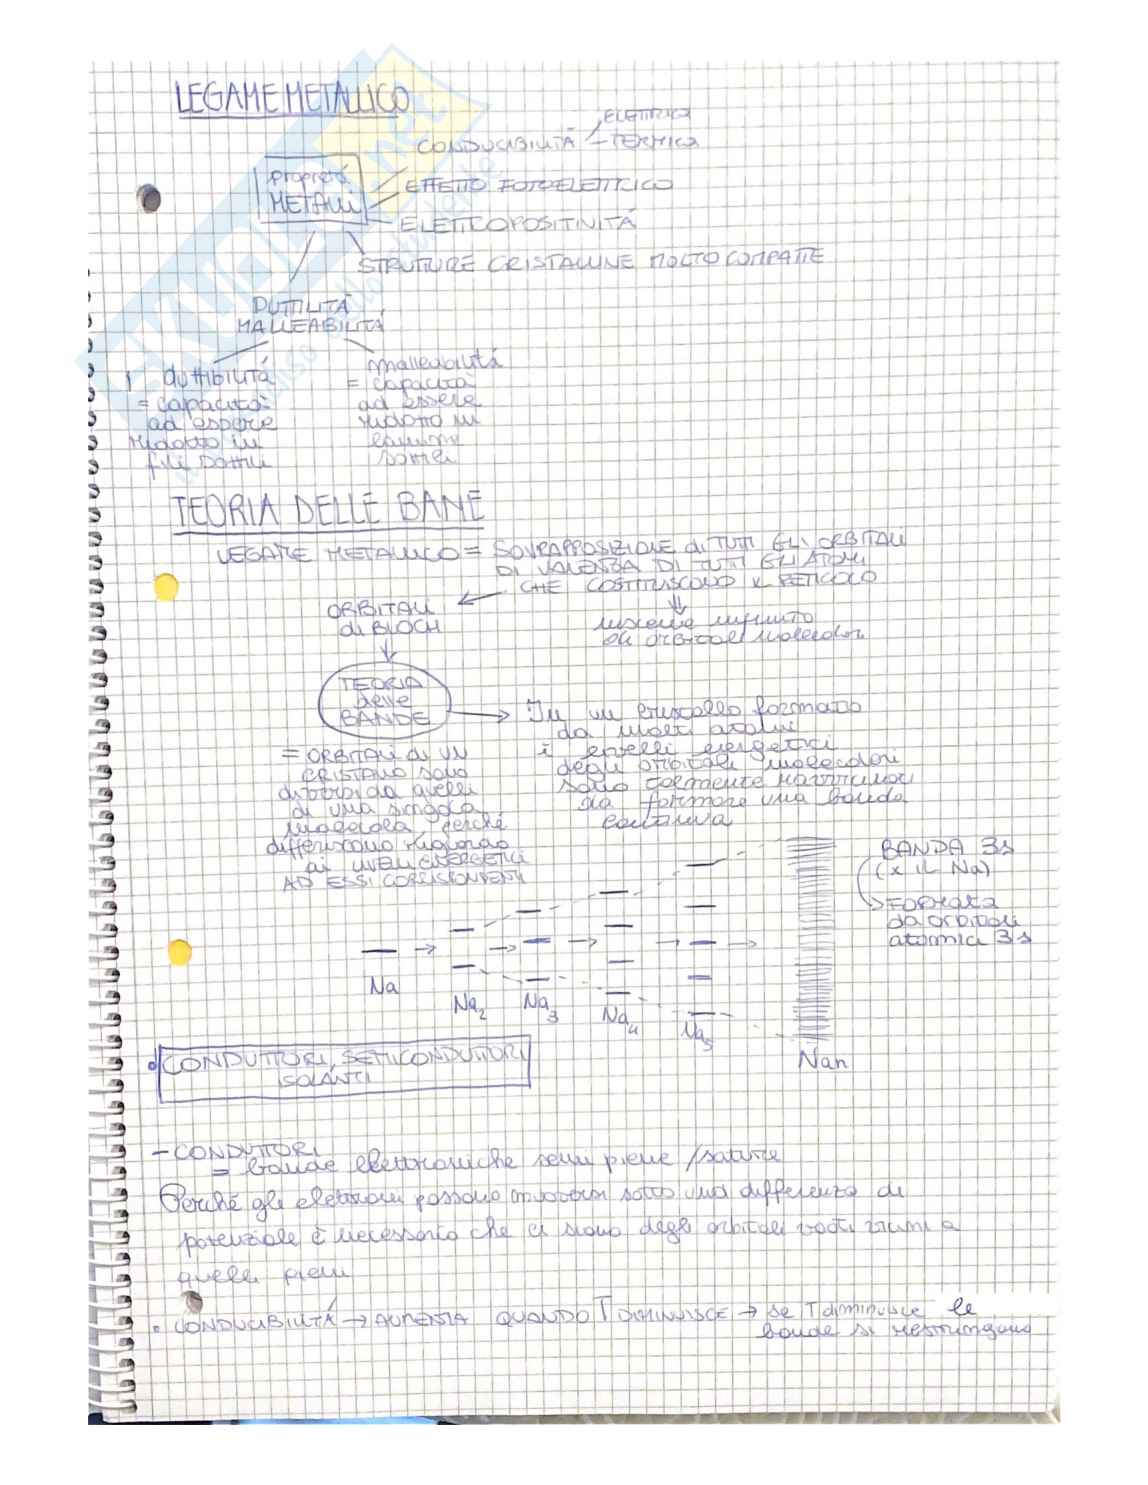 LEGAME METALLICO
ELETTRICA
CONDUCIBILITÁ - TERMICA
proprietá
METALLI
EFFETTO FOTOELETTRICO
ELETTROPOSITIVITÁ
STRUTTURE CRISTALLINE MOLTO COMPATTE
DUTTILITÁ
MALLEABILITÁ
duttibilitá
= capacitá
ad essere
ridotto in
fili sottili
malleabilitá
= capacitá
ad essere
ridotto in
lamine
sottili
TEORIA DELLE BANE
LEGAME METALLICO = SOVRAPPOSIZIONE di TUTTI GLI ORBITALI
DI VALENZA DI TUTTI GLI ATOMI
CHE COSTITUISCONO IL RETICOLO
ORBITALI
di BLOCH
insieme infinito
di orbitali molecolari
TEORIA
delle
BANDE
In un cristallo formato
da molti atomi
i livelli energetici
degli orbitali molecolari
sono talmente ravvicinati
da formare una banda
continua
= ORBITALI di UN
CRISTALLO sono
diversi da quelli
di una singola
molecola, perché
differiscono riguardo
ai livelli ENERGETICI
AD ESSI CORRISPONDENTI
BANDA 3s
(x il Na)
FORMATA
da orbitali
atomici 3s
Na
Na2
Na3
Na4
Na5
Nan
CONDUTTORI, SEMICONDUTTORI
ISOLANTI
- CONDUTTORI
= bande elettroniche semi piene / sature
Perché gli elettroni possano muoversi sotto una differenza di
potenziale è necessario che ci siano degli orbitali vuoti vicini a
quelli pieni
• CONDUCIBILITÁ → AUMENTA QUANDO T DIMINUISCE → se T diminuisce le
bande si restringono